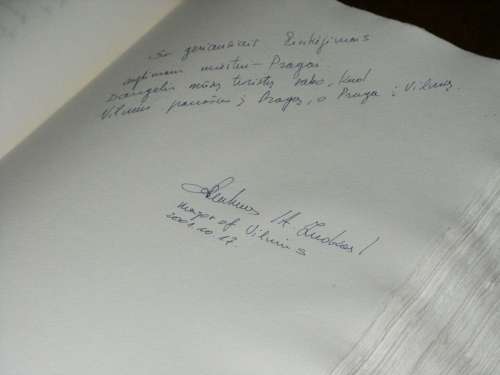 Su geriausiais linkėjimais
miestui - Pragai.
Daugelis mūsų turistų sako, kad
Vilnius panašus į Pragą, o Praga į Vilnių.
Artūras Zuokas
mayor of Vilnius
2001.10.17.